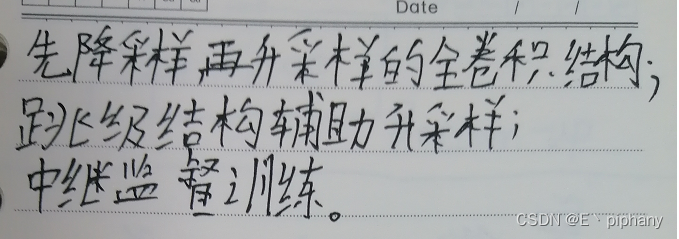 Date / /
先降采样,再升采样的全卷积结构;
跳级结构辅助升采样;
中继监督训练。
CSDN @E · piphany